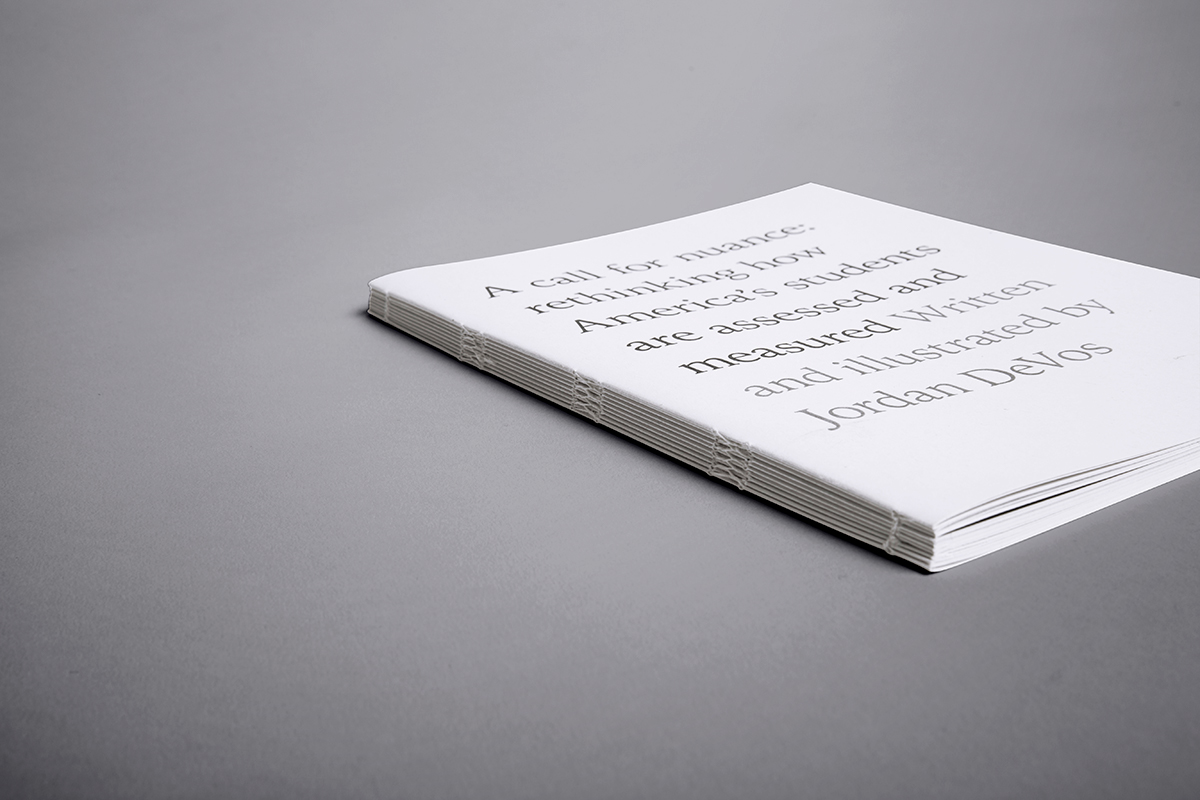 A call for nuance:
rethinking how
America's students
are assessed and
measured Written
and illustrated by
Jordan DeVos